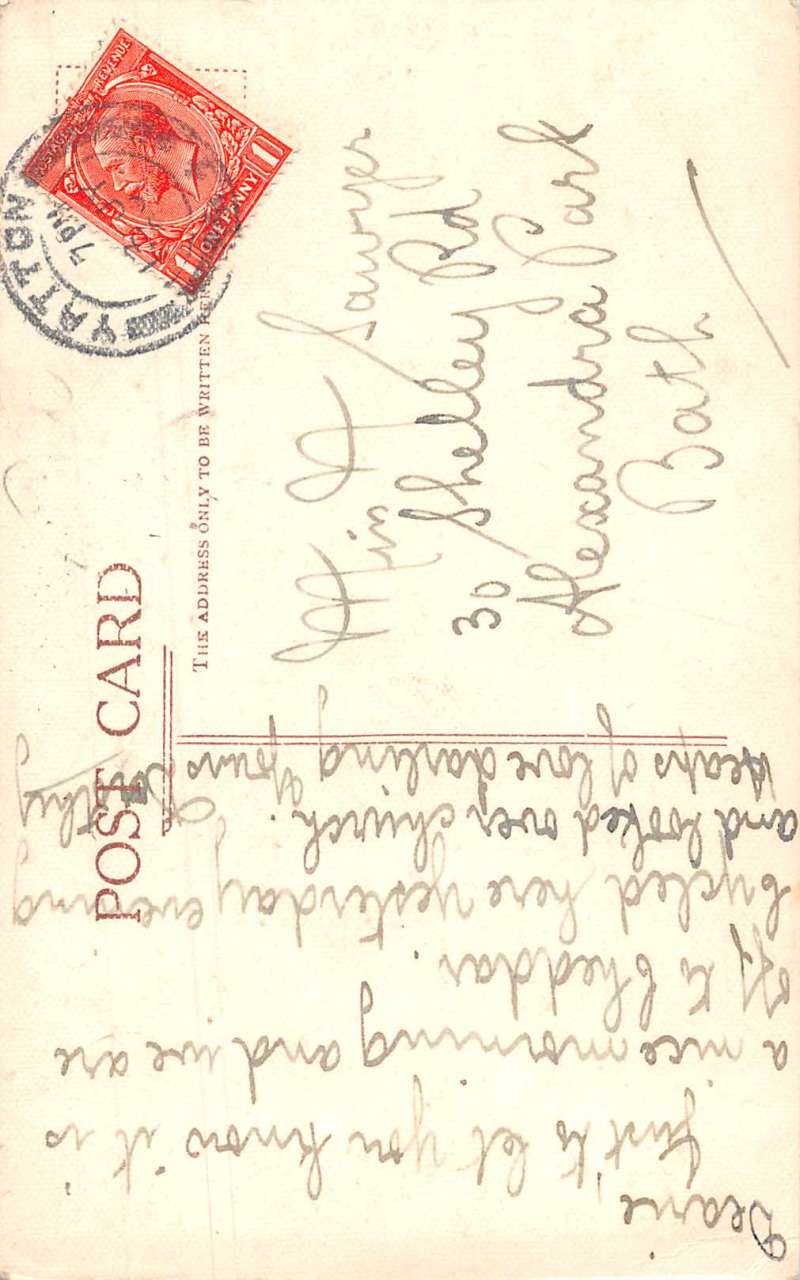 POST CARD
THE ADDRESS ONLY TO BE WRITTEN HERE
REVENUE
ONE PENNY
1 1
YATTON
7 PM
Miss H Sawyer
30 Shelley Rd
Alexandra Park
Bath
Dearie,
Just to let you know it is
a nice morning and we are
off to Cheddar.
bycled here yesterday evening
and looked over church.
Heaps of love darling Yours